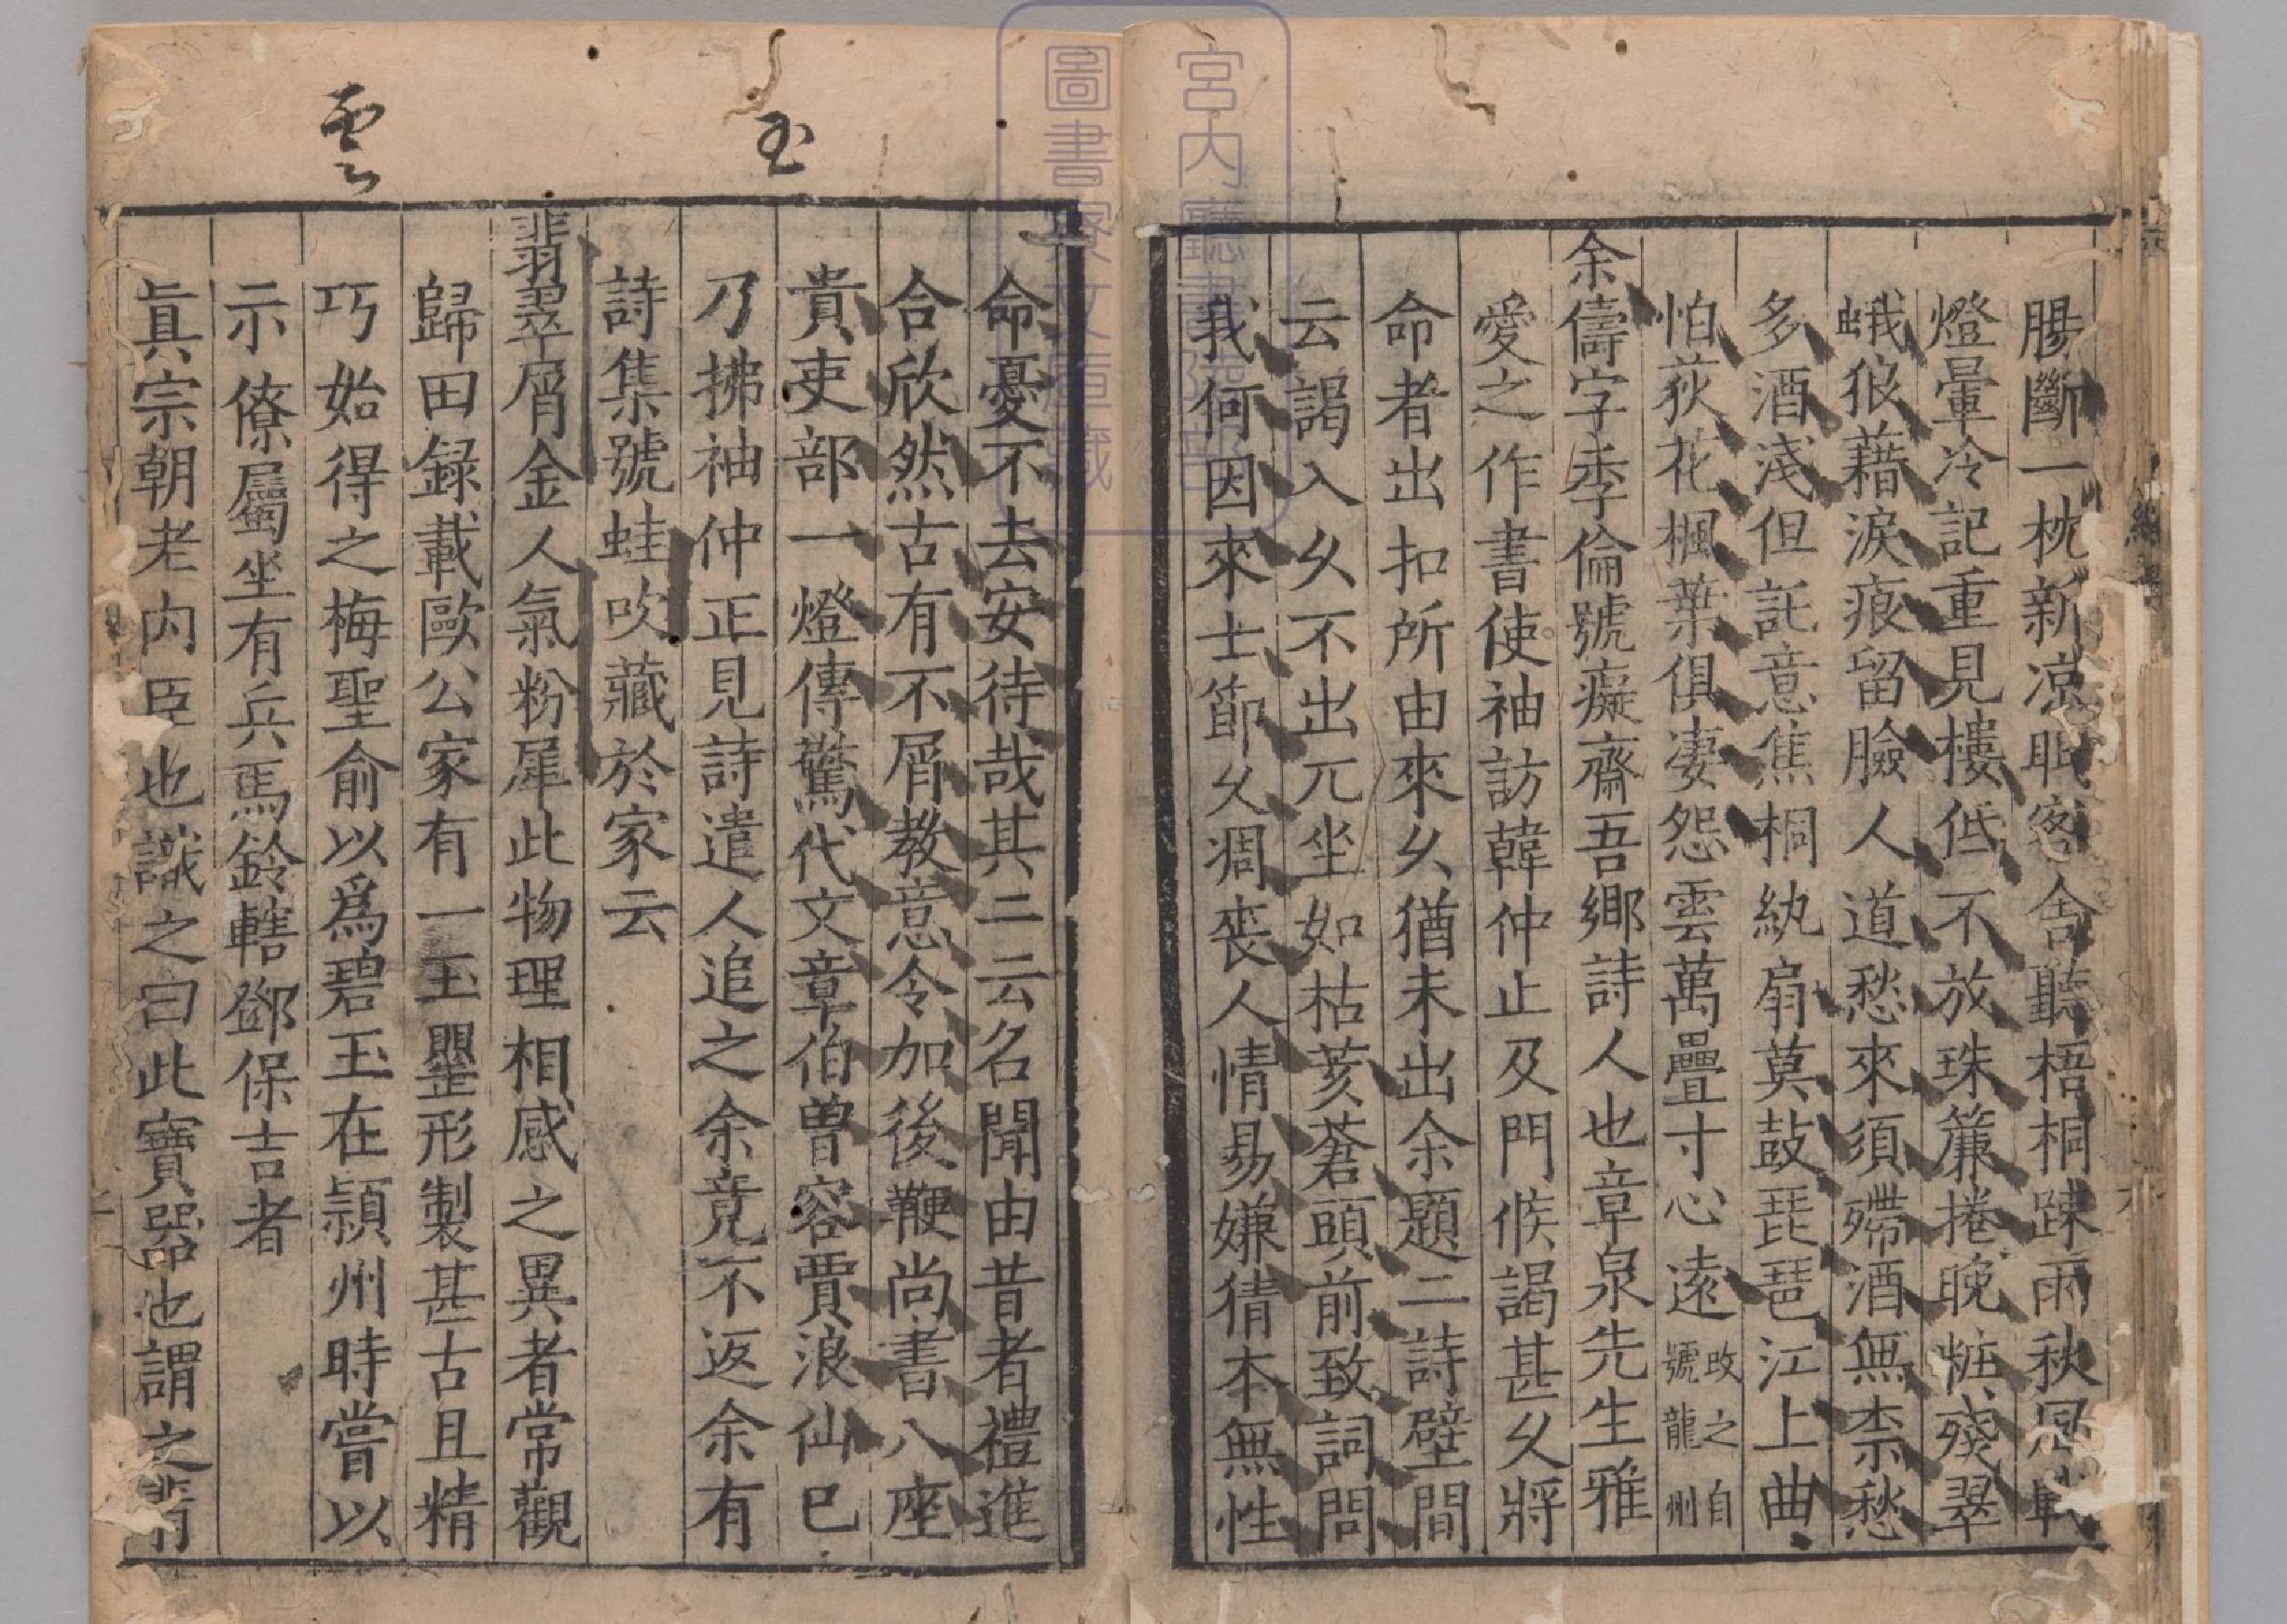 腸斷一枕新凉眠客舍聽梧桐踈雨秋風戰
燈暈冷記重見樓低不放珠簾捲晚粧殘翠
蛾狼藉淚痕留臉人道愁來須殢酒無柰愁
多酒淺但託意焦桐紈扇莫鼓琵琶江上曲
怕荻花楓葉俱淒怨雲萬疊寸心遠改之自號龍州
余儔字季倫號癡齋吾鄉詩人也章泉先生雅
愛之作書使袖訪韓仲止及門候謁甚久將
命者出扣所由來久猶未出余題二詩壁間
云謁入久不出兀坐如枯荄蒼頭前致詞問
我何因來士節久凋喪人情易嫌猜本無性
命憂不去安待哉其二云名聞由昔者禮進
合欣然古有不屑教意令加後鞭尚書八座
貴吏部一燈傳驚代文章伯曽容賈浪仙已
乃拂袖仲正見詩遣人追之余竟不返余有
詩集號蛙吹藏於家云
翡翠屑金人氣粉犀此物理相感之異者常觀
歸田録載歐公家有一玉罌形製甚古且精
巧始得之梅聖俞以爲碧玉在頴州時嘗以
示僚屬坐有兵馬鈴轄鄧保吉者
眞宗朝老内臣也識之曰此寶器也謂之翡
玉
雲
宮内廳書陵部
圖書寮文庫藏